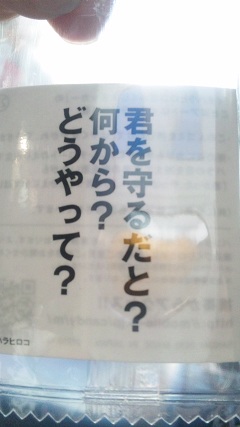 君を守るだと?
何から?
どうやって?
ラヒロコ